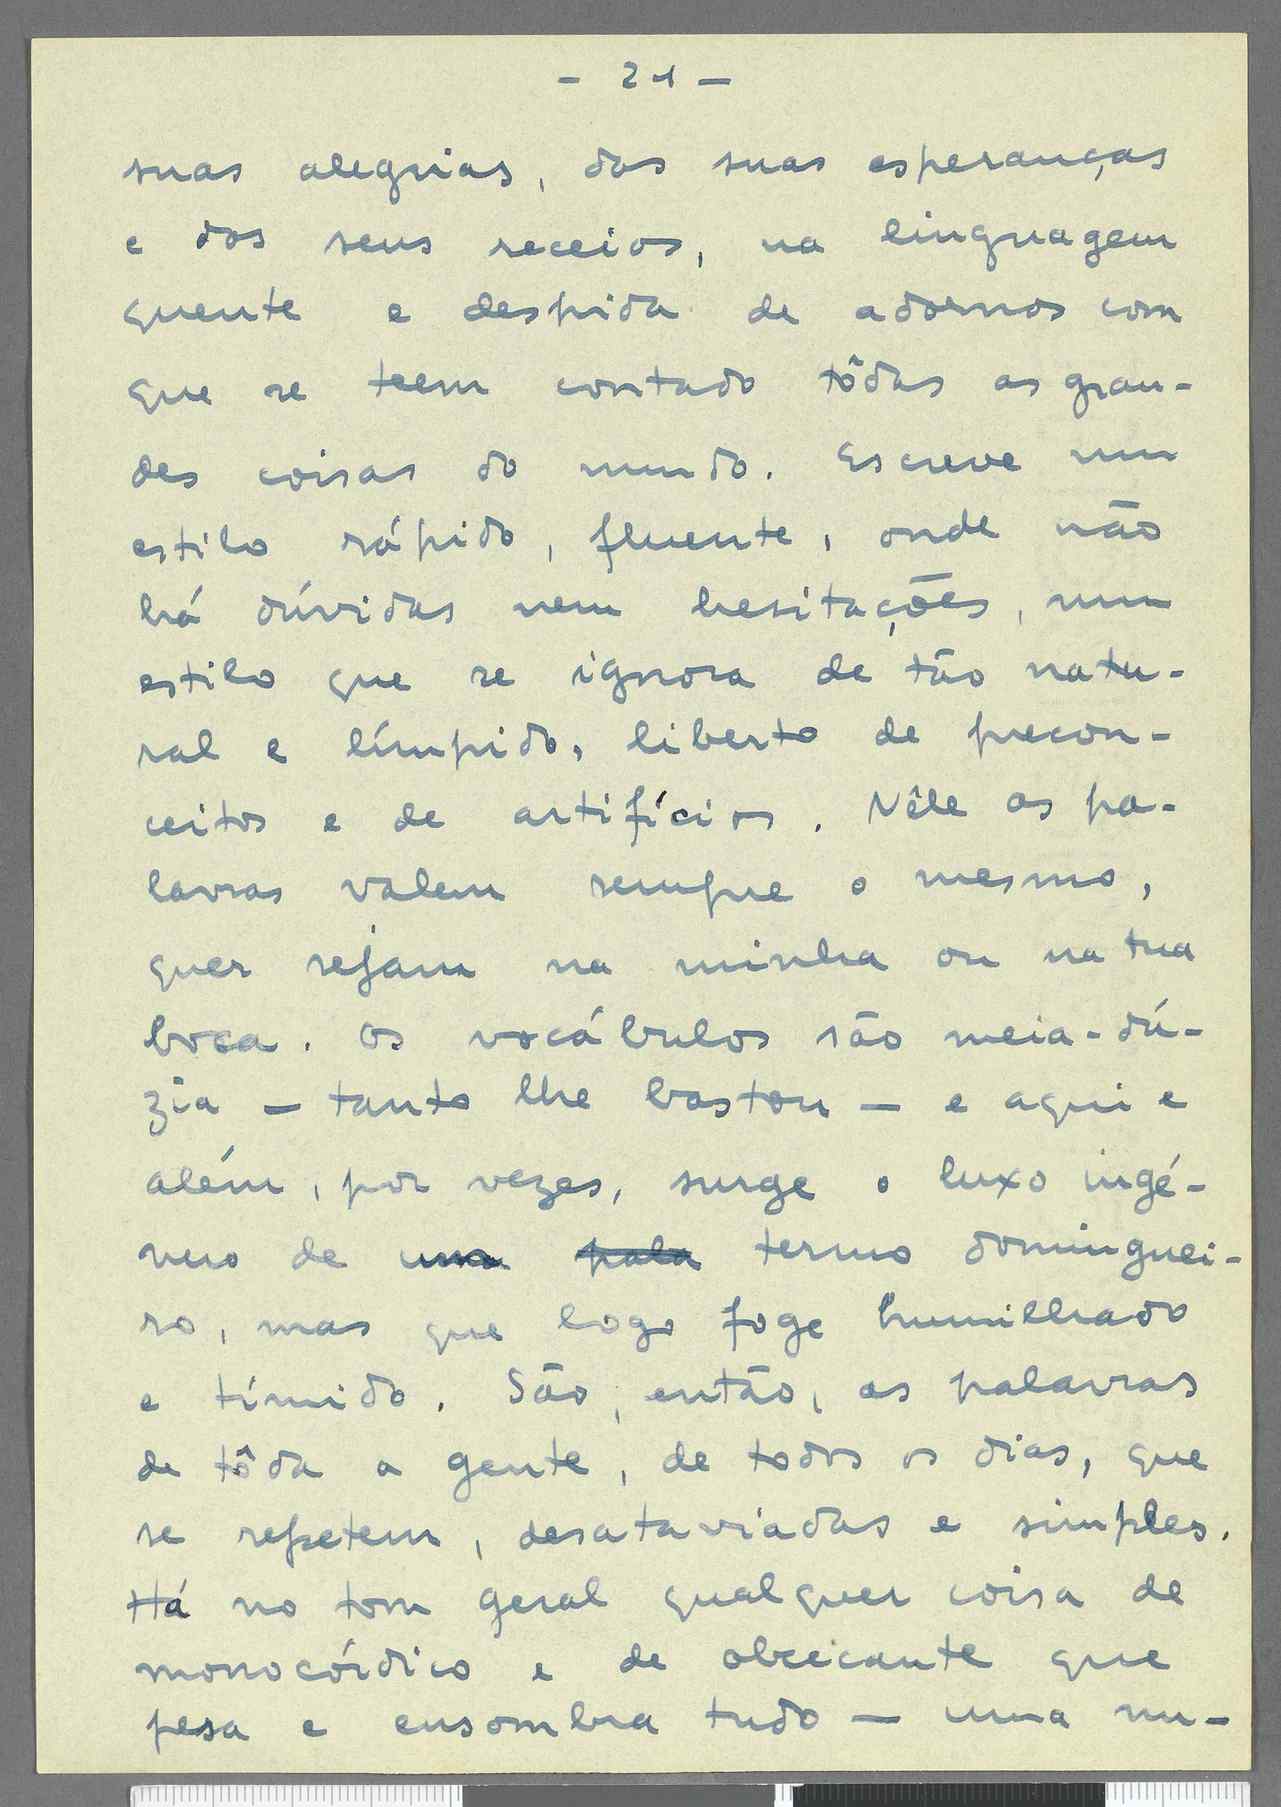 - 21 -
suas alegrias, das suas esperanças
e dos seus receios, na linguagem
quente e despida de adornos com
que se teem contado tôdas as gran-
des coisas do mundo. Escreve num
estilo rápido, fluente, onde não
há dúvidas nem hesitações, num
estilo que se ignora de tão natu-
ral e límpido, liberto de precon-
ceitos e de artifícios. Nêle as pa-
lavras valem sempre o mesmo,
quer sejam na minha ou na tua
boca. Os vocábulos são meia-dú-
zia — tanto lhe bastou — e aqui e
além, por vezes, surge o luxo ingé-
nuo de um pala termo dominguei-
ro, mas que logo foge humilhado
e tímido. São, então, as palavras
de tôda a gente, de todos os dias, que
se repetem, desataviadas e simples.
Há no tom geral qualquer coisa de
monocórdico e de obcecante que
pesa e ensombra tudo — uma nu-